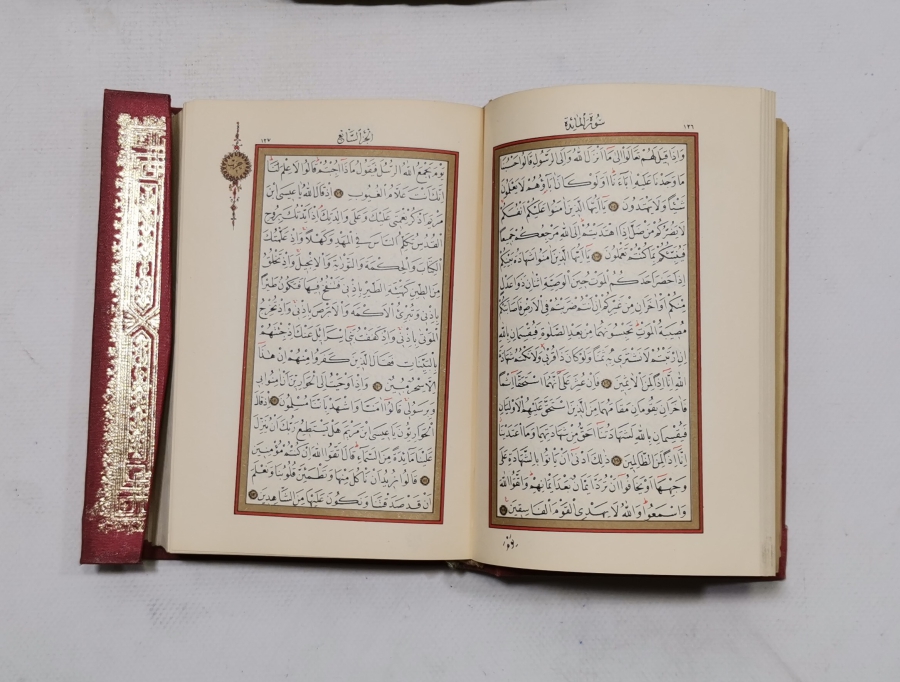 سورة المائدة
١٢٦
وَإِذَا قِيلَ لَهُمْ تَعَالَوْا إِلَى مَا أَنْزَلَ اللهُ وَإِلَى الرَّسُولِ قَالُوا حَسْبُنَا
مَا وَجَدْنَا عَلَيْهِ آبَاءَنَا أَوَلَوْ كَانَ آبَاؤُهُمْ لَا يَعْلَمُونَ
شَيْئًا وَلَا يَهْتَدُونَ يَا أَيُّهَا الَّذِينَ آمَنُوا عَلَيْكُمْ أَنْفُسَكُمْ
لَا يَضُرُّكُمْ مَنْ ضَلَّ إِذَا اهْتَدَيْتُمْ إِلَى اللهِ مَرْجِعُكُمْ جَمِيعًا
فَيُنَبِّئُكُمْ بِمَا كُنْتُمْ تَعْمَلُونَ يَا أَيُّهَا الَّذِينَ آمَنُوا شَهَادَةُ بَيْنِكُمْ
إِذَا حَضَرَ أَحَدَكُمُ الْمَوْتُ حِينَ الْوَصِيَّةِ اثْنَانِ ذَوَا عَدْلٍ
مِنْكُمْ أَوْ آخَرَانِ مِنْ غَيْرِكُمْ إِنْ أَنْتُمْ ضَرَبْتُمْ فِي الْأَرْضِ فَأَصَابَتْكُمْ
مُصِيبَةُ الْمَوْتِ تَحْبِسُونَهُمَا مِنْ بَعْدِ الصَّلٰوةِ فَيُقْسِمَانِ بِاللهِ
إِنِ ارْتَبْتُمْ لَا نَشْتَرِي بِهِ ثَمَنًا وَلَوْ كَانَ ذَا قُرْبَى وَلَا نَكْتُمُ شَهَادَةَ
اللهِ إِنَّا إِذًا لَمِنَ الْآثِمِينَ فَإِنْ عُثِرَ عَلَى أَنَّهُمَا اسْتَحَقَّا إِثْمًا
فَآخَرَانِ يَقُومَانِ مَقَامَهُمَا مِنَ الَّذِينَ اسْتَحَقَّ عَلَيْهِمُ الْأَوْلَيَانِ
فَيُقْسِمَانِ بِاللهِ لَشَهَادَتُنَا أَحَقُّ مِنْ شَهَادَتِهِمَا وَمَا اعْتَدَيْنَا
إِنَّا إِذًا لَمِنَ الظَّالِمِينَ ذَلِكَ أَدْنَى أَنْ يَأْتُوا بِالشَّهَادَةِ عَلَى
وَجْهِهَا أَوْ يَخَافُوا أَنْ تُرَدَّ أَيْمَانٌ بَعْدَ أَيْمَانِهِمْ وَاتَّقُوا اللهَ
وَاسْمَعُوا وَاللهُ لَا يَهْدِي الْقَوْمَ الْفَاسِقِينَ
الجزء السابع
١٢٧
يَوْمَ يَجْمَعُ اللهُ الرُّسُلَ فَيَقُولُ مَاذَا أُجِبْتُمْ قَالُوا لَا عِلْمَ لَنَا
إِنَّكَ أَنْتَ عَلَّامُ الْغُيُوبِ إِذْ قَالَ اللهُ يَا عِيسَى ابْنَ
مَرْيَمَ اذْكُرْ نِعْمَتِي عَلَيْكَ وَعَلَى وَالِدَتِكَ إِذْ أَيَّدْتُكَ بِرُوحِ
الْقُدُسِ تُكَلِّمُ النَّاسَ فِي الْمَهْدِ وَكَهْلًا وَإِذْ عَلَّمْتُكَ
الْكِتَابَ وَالْحِكْمَةَ وَالتَّوْرٰيةَ وَالْإِنْجِيلَ وَإِذْ تَخْلُقُ
مِنَ الطِّينِ كَهَيْئَةِ الطَّيْرِ بِإِذْنِي فَتَنْفُخُ فِيهَا فَتَكُونُ طَيْرًا
بِإِذْنِي وَتُبْرِئُ الْأَكْمَهَ وَالْأَبْرَصَ بِإِذْنِي وَإِذْ تُخْرِجُ
الْمَوْتَى بِإِذْنِي وَإِذْ كَفَفْتُ بَنِي إِسْرَائِيلَ عَنْكَ إِذْ جِئْتَهُمْ
بِالْبَيِّنَاتِ فَقَالَ الَّذِينَ كَفَرُوا مِنْهُمْ إِنْ هَذَا
إِلَّا سِحْرٌ مُبِينٌ وَإِذْ أَوْحَيْتُ إِلَى الْحَوَارِيِّينَ أَنْ آمِنُوا بِي
وَبِرَسُولِي قَالُوا آمَنَّا وَاشْهَدْ بِأَنَّنَا مُسْلِمُونَ إِذْ قَالَ
الْحَوَارِيُّونَ يَا عِيسَى ابْنَ مَرْيَمَ هَلْ يَسْتَطِيعُ رَبُّكَ أَنْ يُنَزِّلَ
عَلَيْنَا مَائِدَةً مِنَ السَّمَاءِ قَالَ اتَّقُوا اللهَ إِنْ كُنْتُمْ مُؤْمِنِينَ
قَالُوا نُرِيدُ أَنْ نَأْكُلَ مِنْهَا وَتَطْمَئِنَّ قُلُوبُنَا وَنَعْلَمَ
أَنْ قَدْ صَدَقْتَنَا وَنَكُونَ عَلَيْهَا مِنَ الشَّاهِدِينَ